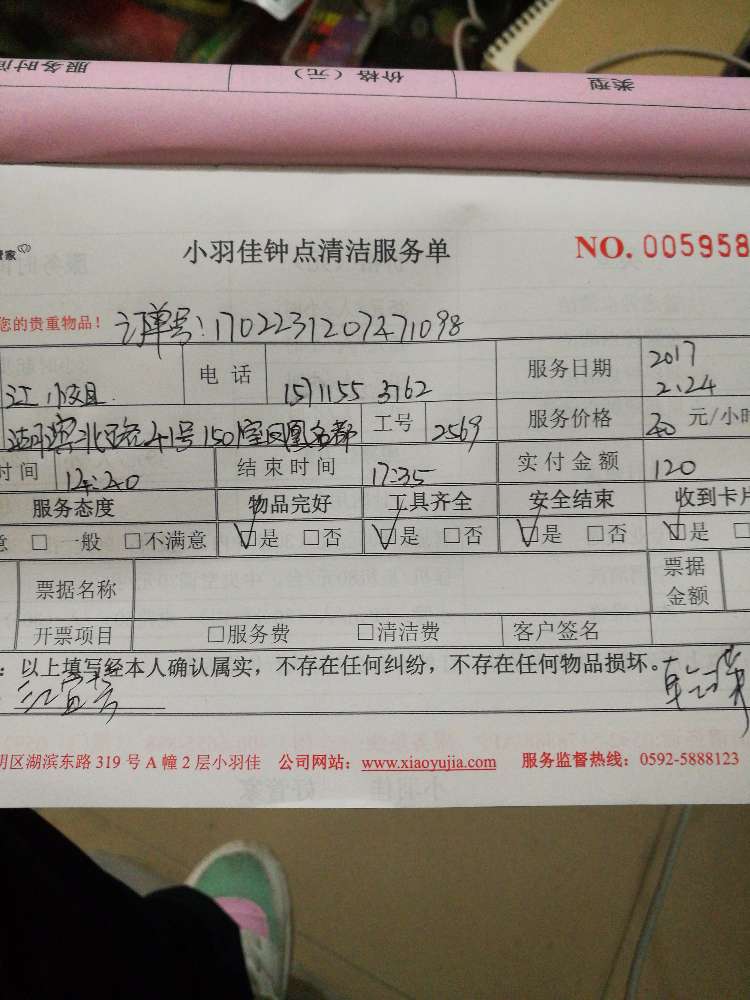 服务时间
价格（元）
类型
管家
小羽佳钟点清洁服务单
NO. 005958
您的贵重物品！
订单号：1702231207471098
江小姐
电话
15711553762
服务日期
2017
2.24
湖滨北路41号1501室凤凰名都
工号
2569
服务价格
元/小时
时间
14:40
结束时间
17:35
实付金额
120
服务态度
物品完好
工具齐全
安全结束
收到卡片
意 □ 一般 □不满意
□是 □否
□是 □否
□是 □否
□是 □
票据名称
票据金额
开票项目
□服务费 □清洁费
客户签名
：以上填写经本人确认属实，不存在任何纠纷，不存在任何物品损坏。
明区湖滨东路 319 号 A 幢 2 层小羽佳 公司网站：www.xiaoyujia.com 服务监督热线：0592-5888123